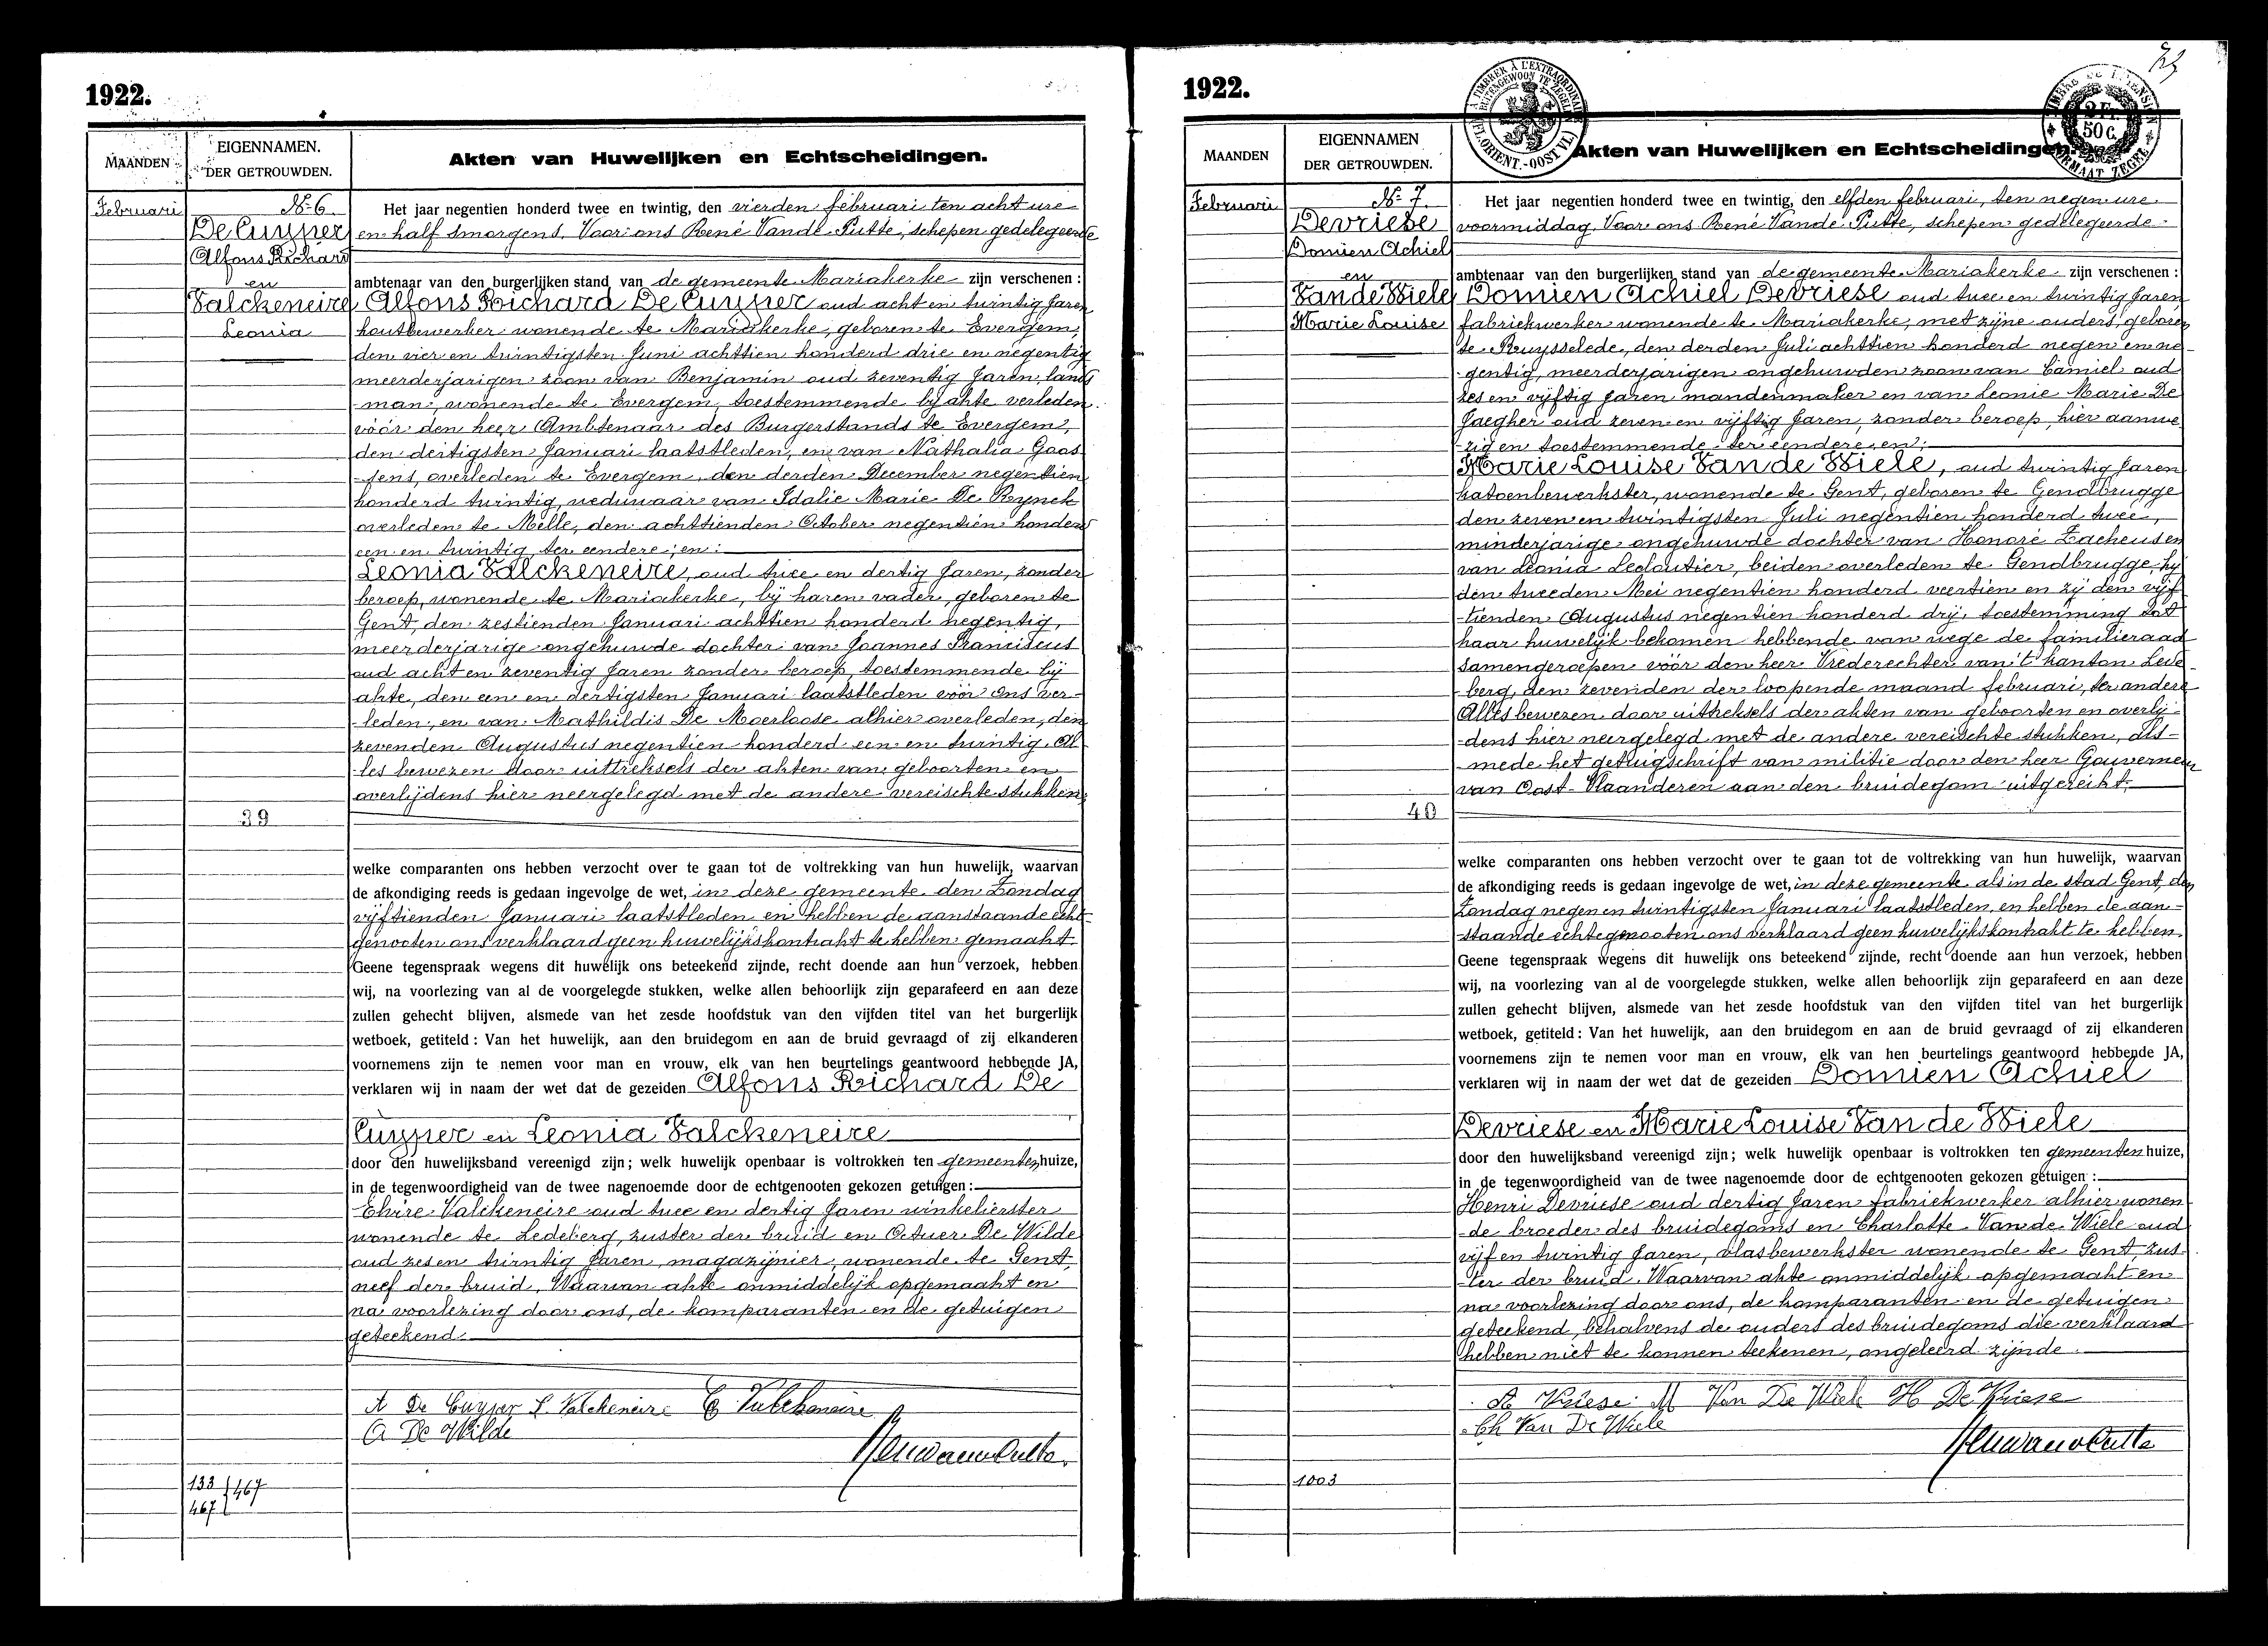 1922.
MAANDEN
EIGENNAMEN.
DER GETROUWDEN.
Akten van Huwelijken en Echtscheidingen.
Februari
No 6
De Cuyper
Alfons Richard
en
Valckeneire
Leonia
Het jaar negentien honderd twee en twintig, den vierden februari ten acht ure
en half smorgens, Voor ons René Vande Putte, schepen gedelegeerde
ambtenaar van den burgerlijken stand van de gemeente Mariakerke zijn verschenen :
Alfons Richard De Cuyper oud acht en twintig Jaren
houtbewerker wonende te Mariakerke, geboren te Evergem,
den vier en twintigsten Juni achttien honderd drie en negentig
meerderjarigen zoon van Benjamin oud zeventig Jaren, land
-man, wonende te Evergem, toestemmende bij akte verleden
vóór den heer Ambtenaar des Burgerstands te Evergem,
den dertigsten Januari laatstleden, en van Nathalia Goos
-sens, overleden te Evergem, den derden December negentien
honderd twintig, weduwaar van Idalie Marie De Rynck
overleden te Melle, den achttienden October negentien honderd
een en twintig, ter eendere; en:
Leonia Valckeneire, oud twee en dertig Jaren, zonder
beroep, wonende te Mariakerke, bij haren vader, geboren te
Gent, den zestienden Januari achttien honderd negentig,
meerderjarige ongehuwde dochter van Joannes Franciscus
oud acht en zeventig Jaren zonder beroep, toestemmende bij
akte, den een en dertigsten Januari laatstleden vóór ons ver-
-leden, en van Mathildis De Moerloose alhier overleden, den
zevenden Augustus negentien honderd een en twintig. Al-
-les bewezen door uittreksels der akten van geboorten en
overlijdens hier neergelegd met de andere vereischte stukken,
39
welke comparanten ons hebben verzocht over te gaan tot de voltrekking van hun huwelijk, waarvan
de afkondiging reeds is gedaan ingevolge de wet, in deze gemeente den Zondag
vijftienden Januari laatstleden en hebben de aanstaande echt-
genooten ons verklaard geen huwelijkskontrakt te hebben gemaakt.
Geene tegenspraak wegens dit huwelijk ons beteekend zijnde, recht doende aan hun verzoek, hebben
wij, na voorlezing van al de voorgelegde stukken, welke allen behoorlijk zijn geparafeerd en aan deze
zullen gehecht blijven, alsmede van het zesde hoofdstuk van den vijfden titel van het burgerlijk
wetboek, getiteld : Van het huwelijk, aan den bruidegom en aan de bruid gevraagd of zij elkanderen
voornemens zijn te nemen voor man en vrouw, elk van hen beurtelings geantwoord hebbende JA,
verklaren wij in naam der wet dat de gezeiden Alfons Richard De
Cuyper en Leonia Valckeneire
door den huwelijksband vereenigd zijn ; welk huwelijk openbaar is voltrokken ten gemeentenhuize,
in de tegenwoordigheid van de twee nagenoemde door de echtgenooten gekozen getuigen :
Elvire Valckeneire oud twee en dertig Jaren winkelierster
wonende te Ledeberg, zuster der bruid en Octuer De Wilde
oud zes en twintig Jaren, magazijnier, wonende te Gent,
neef der bruid. Waarvan akte onmiddelijk opgemaakt en
na voorlezing door ons, de komparanten en de getuigen
geteekend.
A De Cuyper L. Valckeneire E Valckeneire
O De Wilde
133
467
467
1922.
MAANDEN
EIGENNAMEN
DER GETROUWDEN.
À TIMBRER À L'EXTRAORDINAIRE
BUITENGEWOON TE ZEGELEN
(FL. ORIENT.-OOST VL.)
2 Fr.
50 C.
Akten van Huwelijken en Echtscheidingen.
Februari
No 7.
Devriese
Domien Achiel
en
Van de Wiele
Marie Louise
Het jaar negentien honderd twee en twintig, den elfden februari, ten negen ure
voormiddag. Voor ons René Vande Putte, schepen gedelegeerde
ambtenaar van den burgerlijken stand van de gemeente Mariakerke zijn verschenen :
Domien Achiel Devriese oud twee en twintig Jaren
fabriekwerker wonende te Mariakerke, met zijne ouders, geboren
te Ruysselede, den derden Juli achttien honderd negen en ne-
-gentig, meerderjarigen ongehuwden zoon van Camiel oud
zes en vijftig Jaren mandenmaker en van Leonie Marie De
Jaegher oud zeven en vijftig Jaren, zonder beroep, hier aanwe
-zig en toestemmende ter eendere, en:
Marie Louise Van de Wiele, oud twintig Jaren
katoenbewerkster, wonende te Gent, geboren te Gendbrugge
den zeven en twintigsten Juli negentien honderd twee,
minderjarige ongehuwde dochter van Honoré Zacheus en
van Leonia Ledoutier, beiden overleden te Gendbrugge, hij
den tweeden Mei negentien honderd veertien en zij den vijf
-tienden Augustus negentien honderd drij, toestemming tot
haar huwelijk bekomen hebbende van wege de familieraad
samengeroepen vóór den heer Vrederechter van 't kanton Lede-
-berg, den zevenden der loopende maand februari, ter andere
Alles bewezen door uitheksels der akten van geboorten en overlij-
-dens hier neergelegd met de andere vereischte stukken, als-
-mede het getuigschrift van militie door den heer Gouverneur
van Oost-Vlaanderen aan den bruidegom uitgereikt.
40
welke comparanten ons hebben verzocht over te gaan tot de voltrekking van hun huwelijk, waarvan
de afkondiging reeds is gedaan ingevolge de wet, in deze gemeente als in de stad Gent, den
Zondag negen en twintigsten Januari laatstleden, en hebben de aan-
-staande echtegenooten ons verklaard geen huwelijkskontrakt te hebben.
Geene tegenspraak wegens dit huwelijk ons beteekend zijnde, recht doende aan hun verzoek, hebben
wij, na voorlezing van al de voorgelegde stukken, welke allen behoorlijk zijn geparafeerd en aan deze
zullen gehecht blijven, alsmede van het zesde hoofdstuk van den vijfden titel van het burgerlijk
wetboek, getiteld : Van het huwelijk, aan den bruidegom en aan de bruid gevraagd of zij elkanderen
voornemens zijn te nemen voor man en vrouw, elk van hen beurtelings geantwoord hebbende JA,
verklaren wij in naam der wet dat de gezeiden Domien Achiel
Devriese en Marie Louise Van de Wiele
door den huwelijksband vereenigd zijn ; welk huwelijk openbaar is voltrokken ten gemeentenhuize,
in de tegenwoordigheid van de twee nagenoemde door de echtgenooten gekozen getuigen :
Henri Devriese oud dertig Jaren fabriekwerker alhier wonen
-de broeder des bruidegoms en Charlotte Van de Wiele oud
vijf en twintig Jaren, vlasbewerkster wonende te Gent, zus-
-ter der bruid. Waarvan akte onmiddelijk opgemaakt en
na voorlezing door ons, de komparanten en de getuigen
geteekend, behalvens de ouders des bruidegoms die verklaard
hebben niet te konnen teekenen, ongeleerd zijnde.
A Vriese M Van De Wiele H De Vriese
Ch Van De Wiele
1003